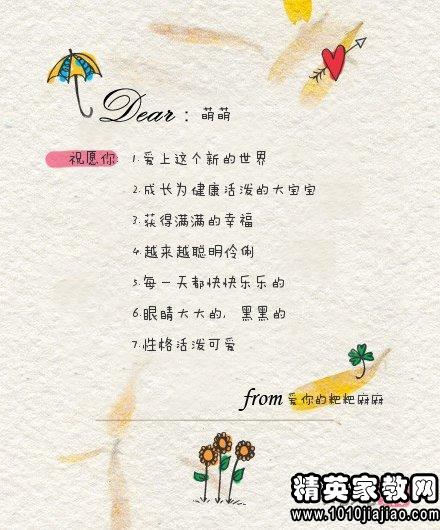 Dear：萌萌
祝愿你: 1.爱上这个新的世界
2.成长为健康活泼的大宝宝
3.获得满满的幸福
4.越来越聪明伶俐
5.每一天都快快乐乐的
6.眼睛大大的，黑黑的
7.性格活泼可爱
from 爱你的粑粑麻麻
精英家教网
www.1010jiajiao.com